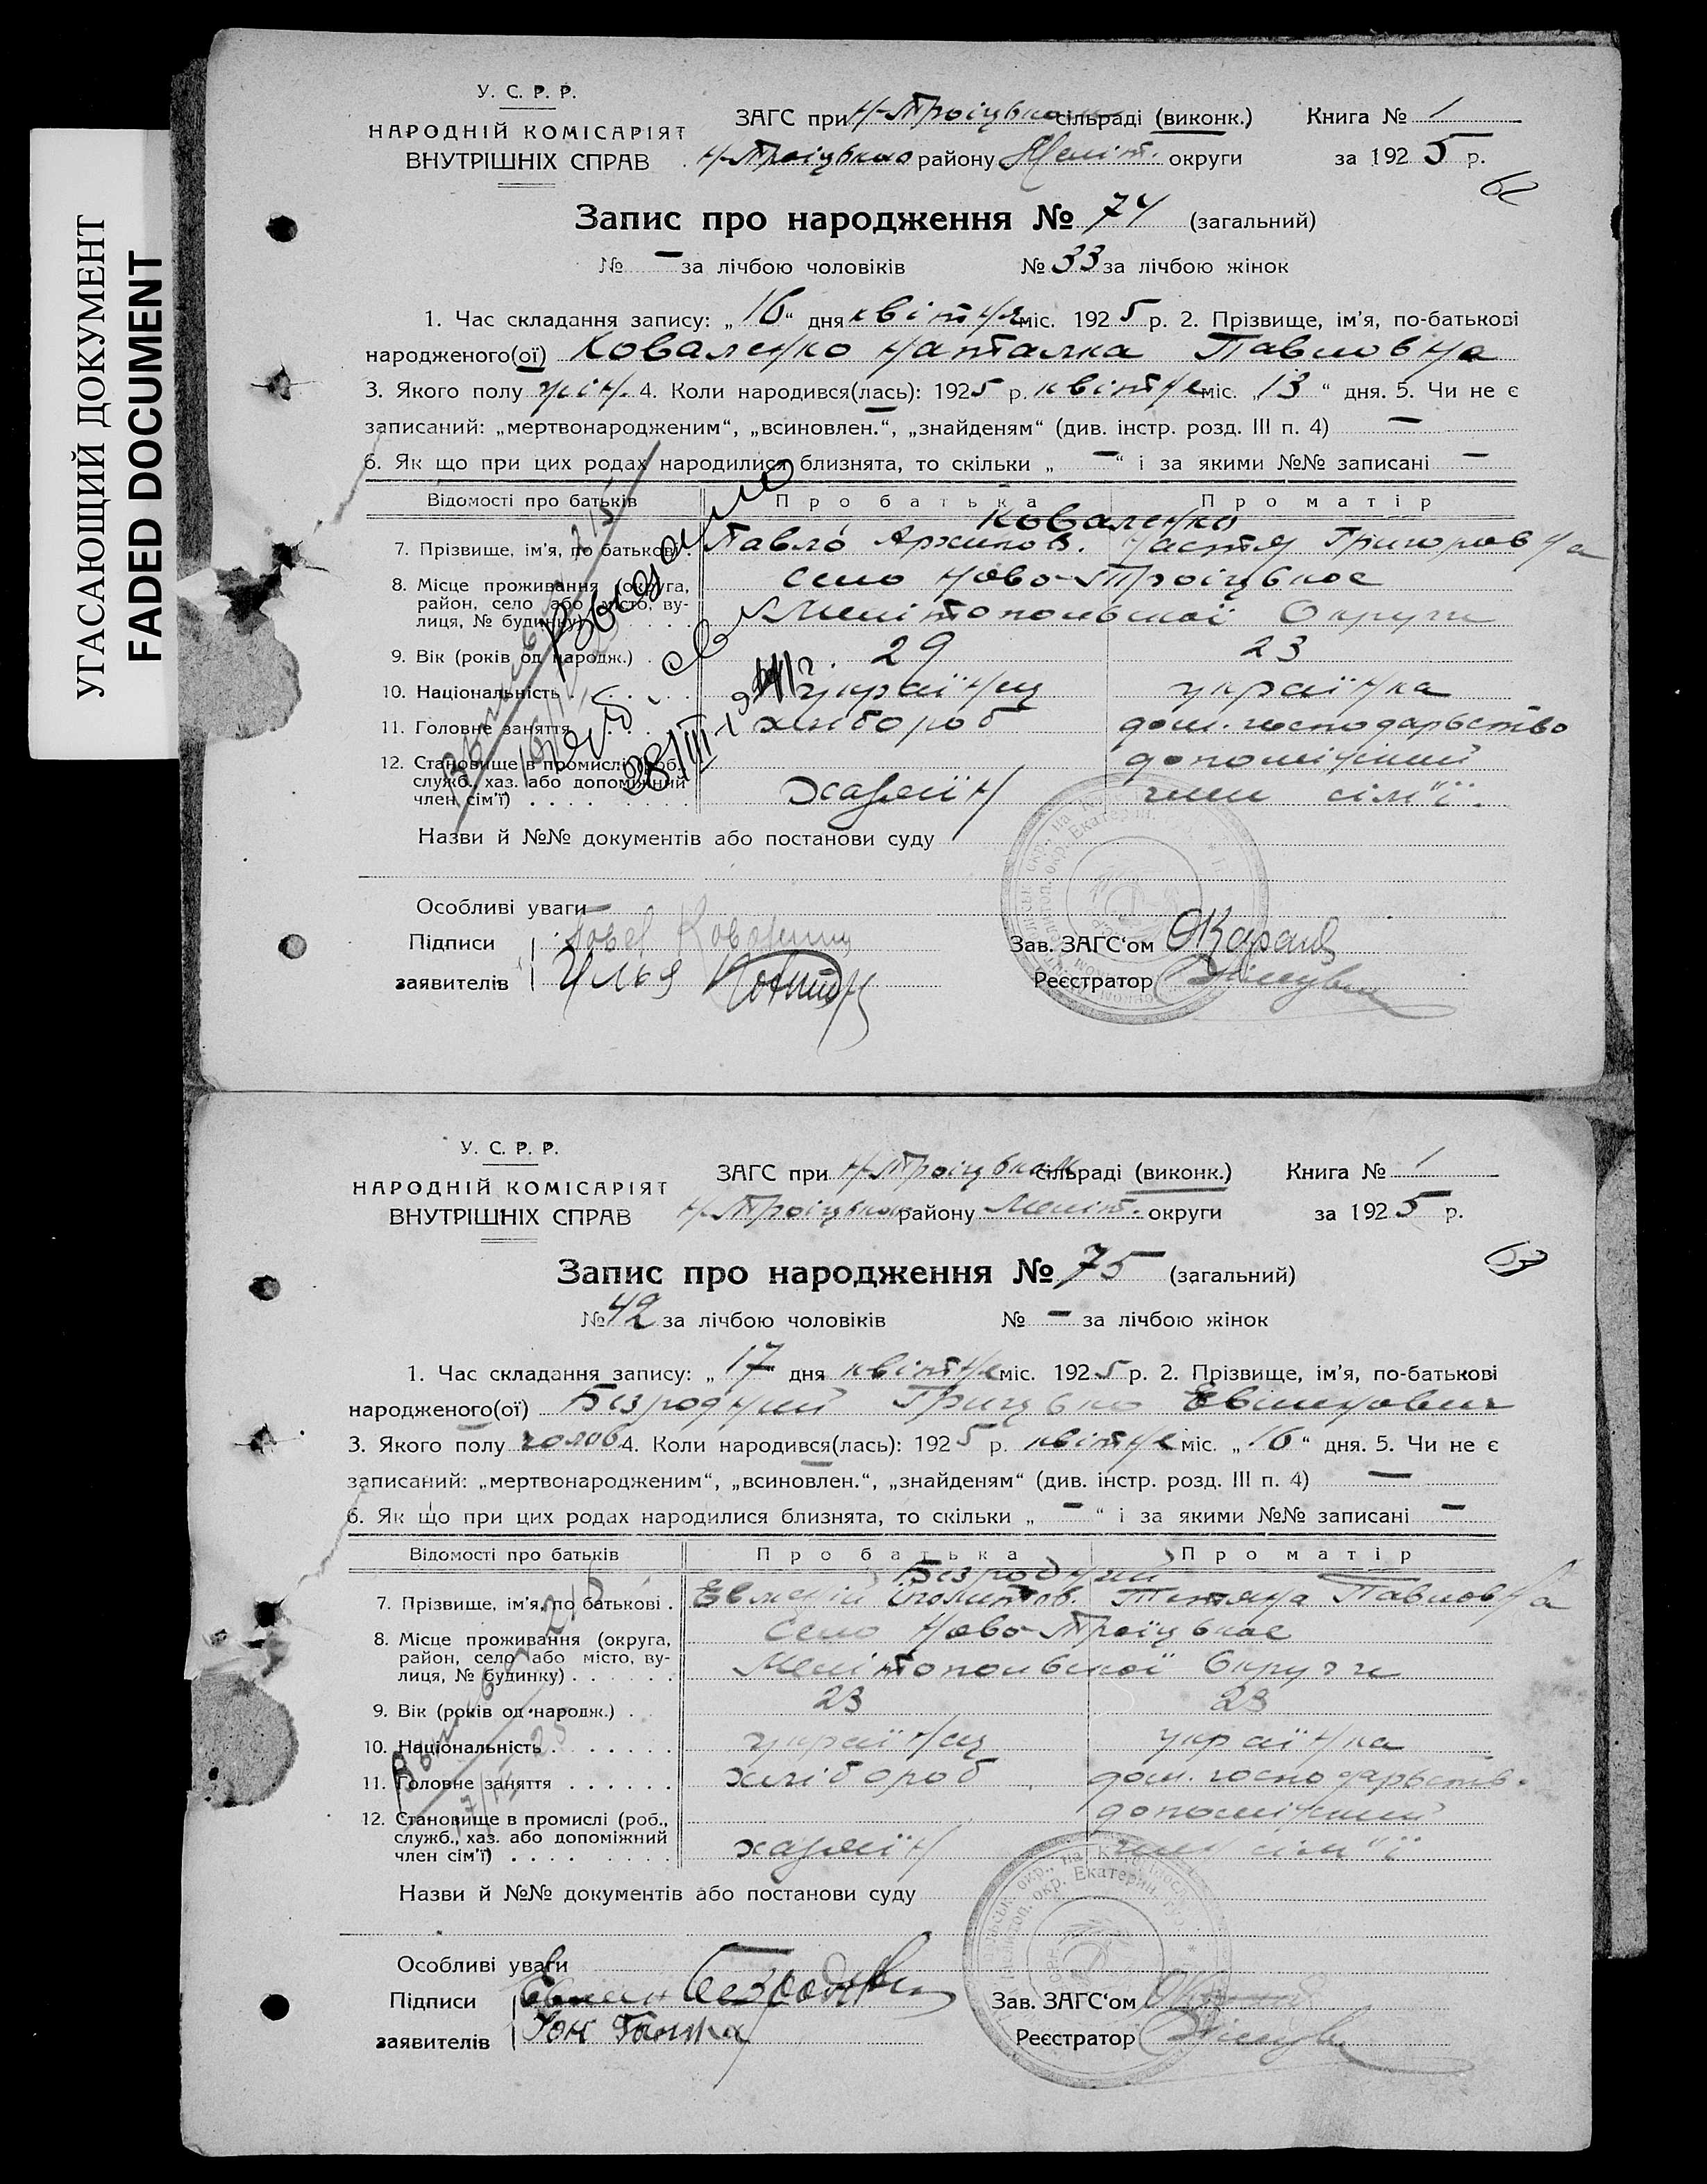 УГАСАЮЩИЙ ДОКУМЕНТ
FADED DOCUMENT
У. С. Р. Р.
НАРОДНІЙ КОМІСАРІЯТ
ВНУТРІШНІХ СПРАВ
ЗАГС при Н-Троіцьком сільраді (виконк.) Книга № 1
Н-Троіцького району Меліт. округи за 1925 р.
62
Запис про народження № 74 (загальний)
№ — за лічбою чоловіків № 33 за лічбою жінок
1. Час складання запису: „16“ дня квітня міс. 1925 р. 2. Прізвище, ім'я, по-батькові
народженого(ої) Коваленко Наталка Павловна
3. Якого полу жін. 4. Коли народився(лась): 1925 р. квітня міс. „13“ дня. 5. Чи не є
записаний: „мертвонародженим“, „всиновлен.“, „знайденям“ (див. інстр. розд. III п. 4) —
6. Як що при цих родах народилися близнята, то скільки „—“ і за якими №№ записані —
Відомості про батьків Про батька Про матір
Коваленко
7. Прізвище, ім'я, по батькові . Павло Архипов. Настя Григоровна
8. Місце проживання (округа, село Ново-Троіцькое
район, село або місто, ву-
лиця, № будинку) Мелітопольської Округи
9. Вік (років од народж.) . 29 23
10. Національність українц українка
11. Головне заняття хлібороб дом. господарьство
12. Становище в промислі (роб., допоміжний
служб., хаз. або допоміжний
член сім'ї) хазяїн член сім"ї.
Видано
28/III-19
Назви й №№ документів або постанови суду
Особливі уваги
Підписи Зав. ЗАГС'ом
заявителів Илья Реєстратор
У. С. Р. Р.
НАРОДНІЙ КОМІСАРІЯТ
ВНУТРІШНІХ СПРАВ
ЗАГС при Н-Троіцьком сільраді (виконк.) Книга № 1
Н-Троіцького району Меліт. округи за 1925 р.
63
Запис про народження № 75 (загальний)
№ 42 за лічбою чоловіків № — за лічбою жінок
1. Час складання запису: „17 дня квітня міс. 1925 р. 2. Прізвище, ім'я, по-батькові
народженого(ої) Безродний Грицько Евменович
3. Якого полу чолов. 4. Коли народився(лась): 1925 р. квітня міс. „16“ дня. 5. Чи не є
записаний: „мертвонародженим“, „всиновлен.“, „знайденям“ (див. інстр. розд. III п. 4) —
6. Як що при цих родах народилися близнята, то скільки „—“ і за якими №№ записані —
Відомості про батьків Про батька Про матір
Безродний
7. Прізвище, ім'я, по батькові . Евмений Іполитов. Тетяна Павловна
8. Місце проживання (округа, село Ново-Троїцькое
район, село або місто, ву-
лиця, № будинку) Мелітопольської Округи
9. Вік (років од народж.) . 23 23
10. Національність українц українка
11. Головне заняття хлібороб дом. господарьств.
12. Становище в промислі (роб., допоміжний
служб., хаз. або допоміжний
член сім'ї) хазяїн член сім"ї
Назви й №№ документів або постанови суду
Особливі уваги
Підписи Зав. ЗАГС'ом
заявителів Реєстратор